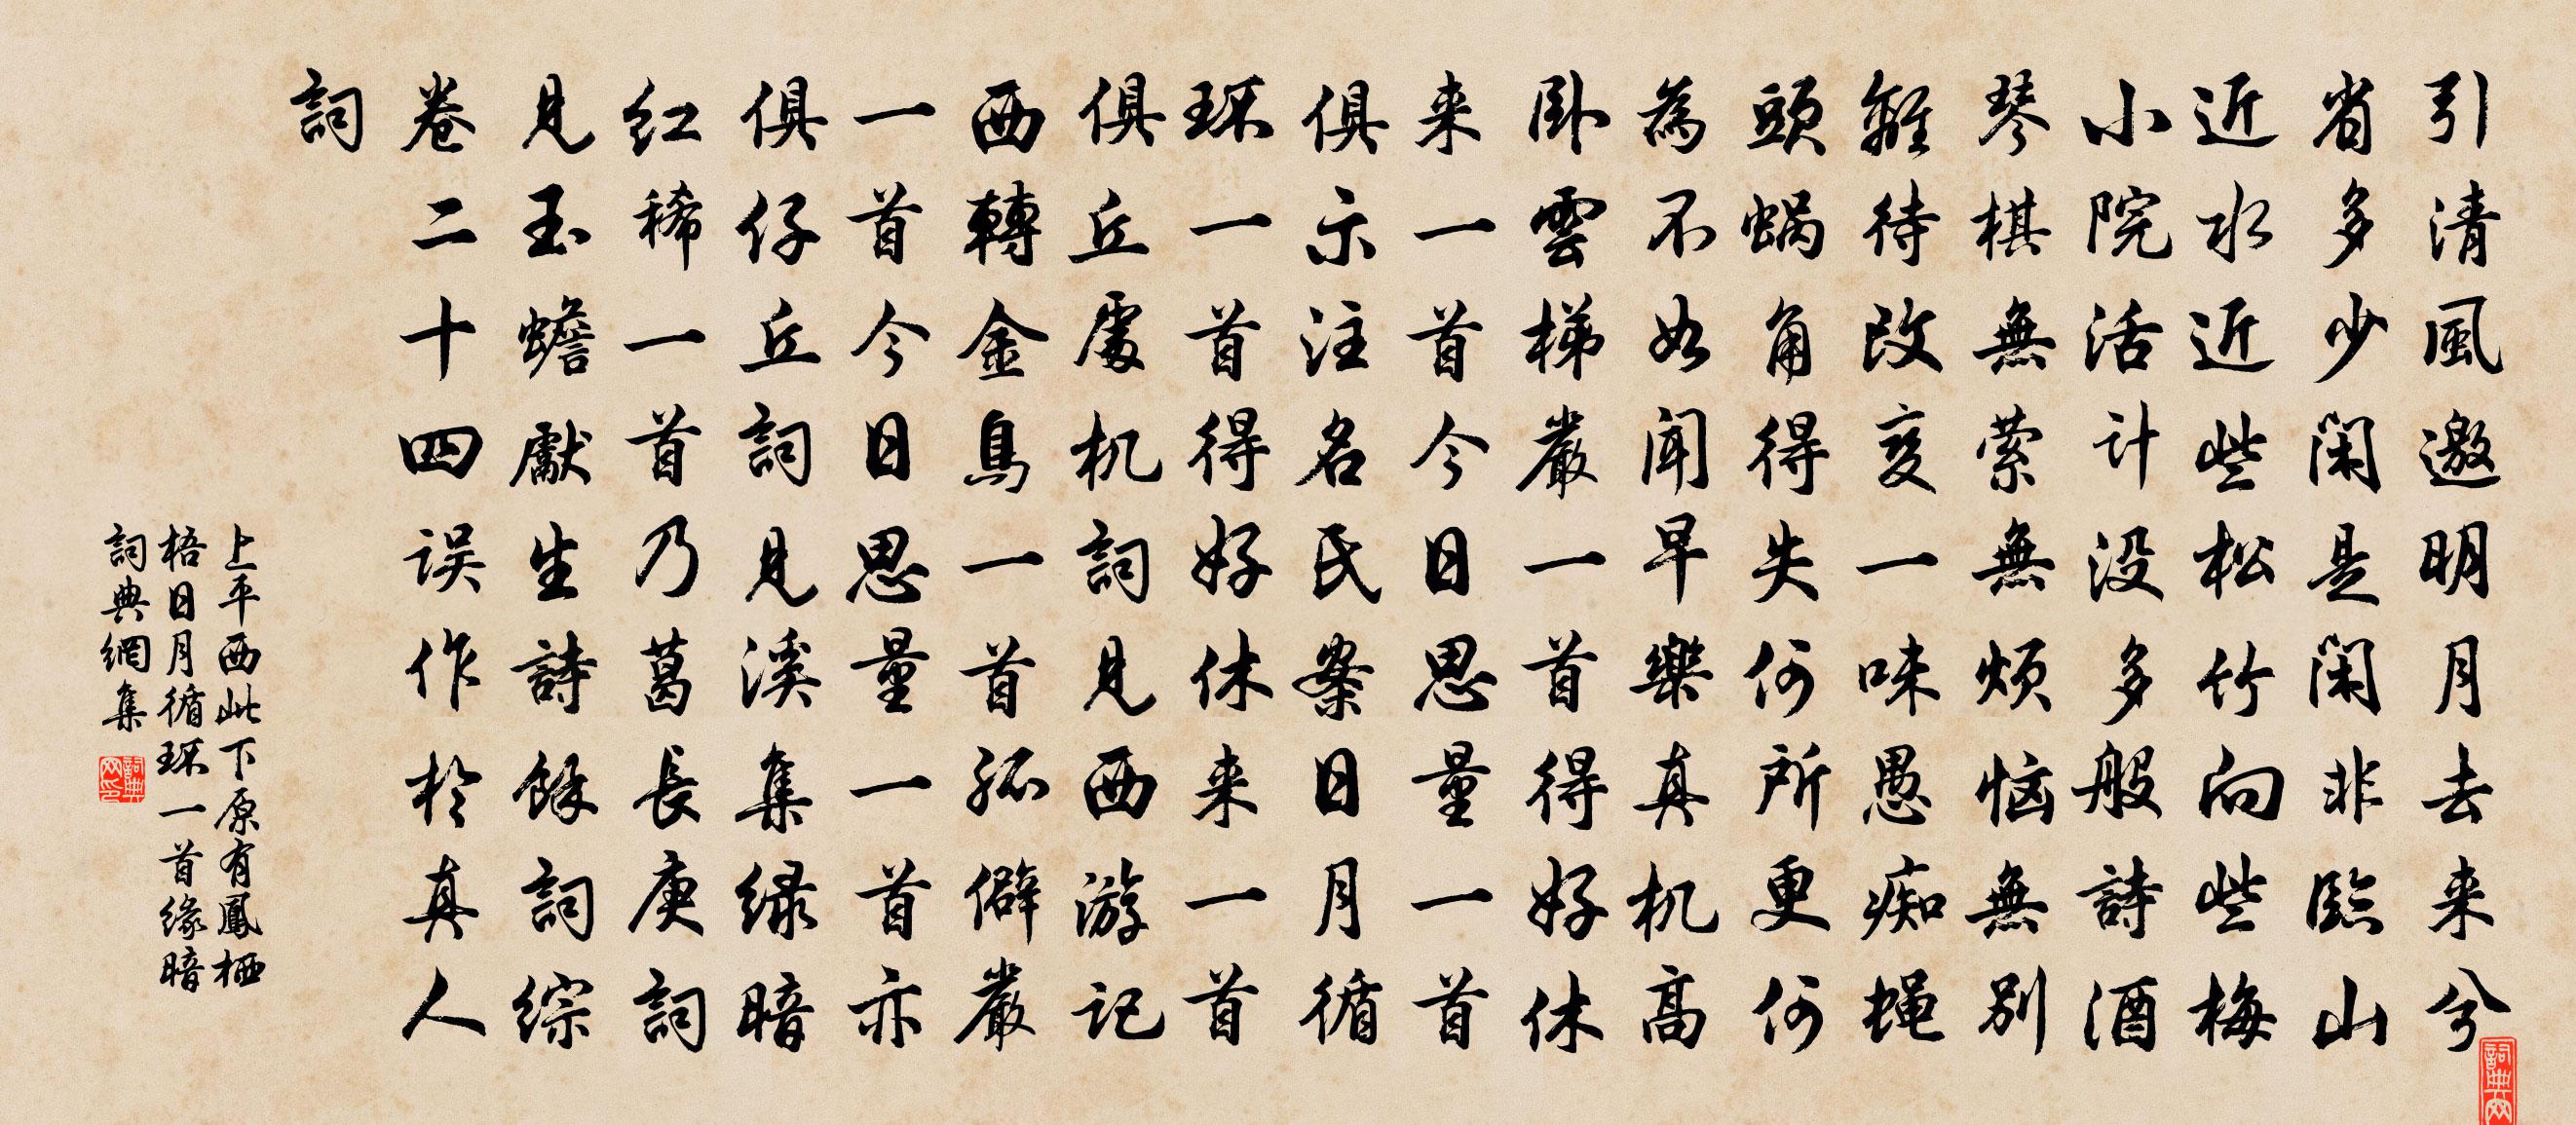 引清風邀明月去来兮
省多少闲是闲非臨山
近水近些松竹向些梅
小院活计没多般詩酒
琴棋無萦無烦恼無别
離待改变一味愚痴蝇
頭蜗角得失何所更何
為不如闻早樂真机高
卧雲梯嚴一首得好休
来一首今日思量一首
俱示注名氏案日月循
环一首得好休来一首
俱丘處机詞見西游记
西轉金烏一首孤僻嚴
一首今日思量一首亦
俱仔丘詞見溪集绿暗
红稀一首乃葛長庚詞
見玉蟾獻生詩餘詞综
卷二十四误作於真人
詞
上平西此下原有鳳栖
梧日月循环一首缘暗
詞典網集
詞典网印
詞典网